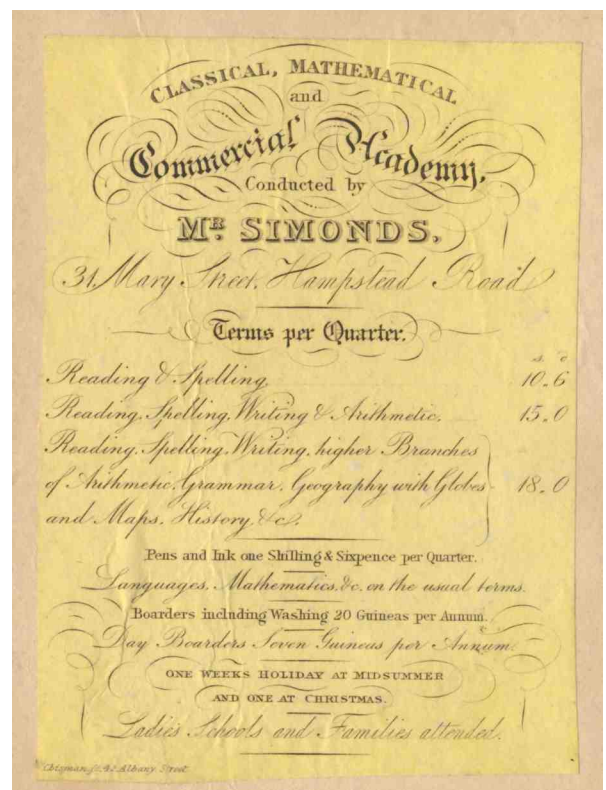 CLASSICAL, MATHEMATICAL
and
Commercial Academy.
Conducted by
MR. SIMONDS,
31, Mary Street, Hampstead Road
Terms per Quarter.
Reading & Spelling, 10.6
Reading, Spelling, Writing & Arithmetic, 15.0
Reading, Spelling, Writing, higher Branches
of Arithmetic, Grammar, Geography with Globes 18.0
and Maps, History, &c.
Pens and Ink one Shilling & Sixpence per Quarter.
Languages, Mathematics, &c. on the usual terms.
Boarders including Washing 20 Guineas per Annum.
Day Boarders Seven Guineas per Annum.
ONE WEEKS HOLIDAY AT MIDSUMMER
AND ONE AT CHRISTMAS.
Ladies Schools and Families attended.
Chapman, 42 Albany Street